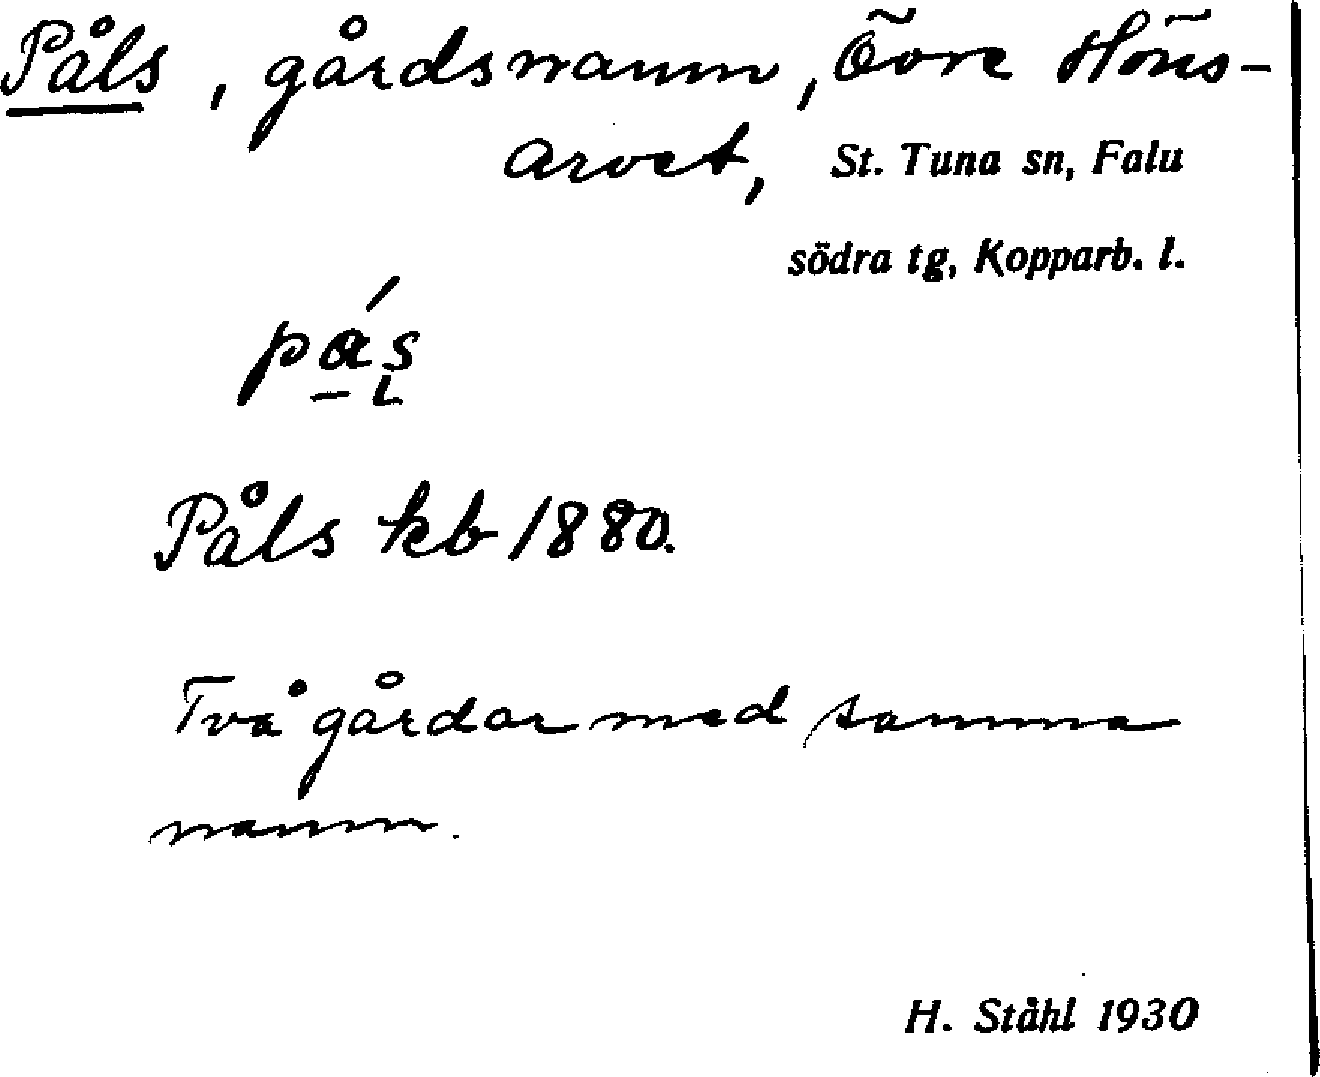 Påls, gårdsnamn, Övre Höns-
arvet, St. Tuna sn, Falu
södra tg, Kopparb. l.
Påls kb 1880.
Två gårdar med samma
namn.
H. Ståhl 1930